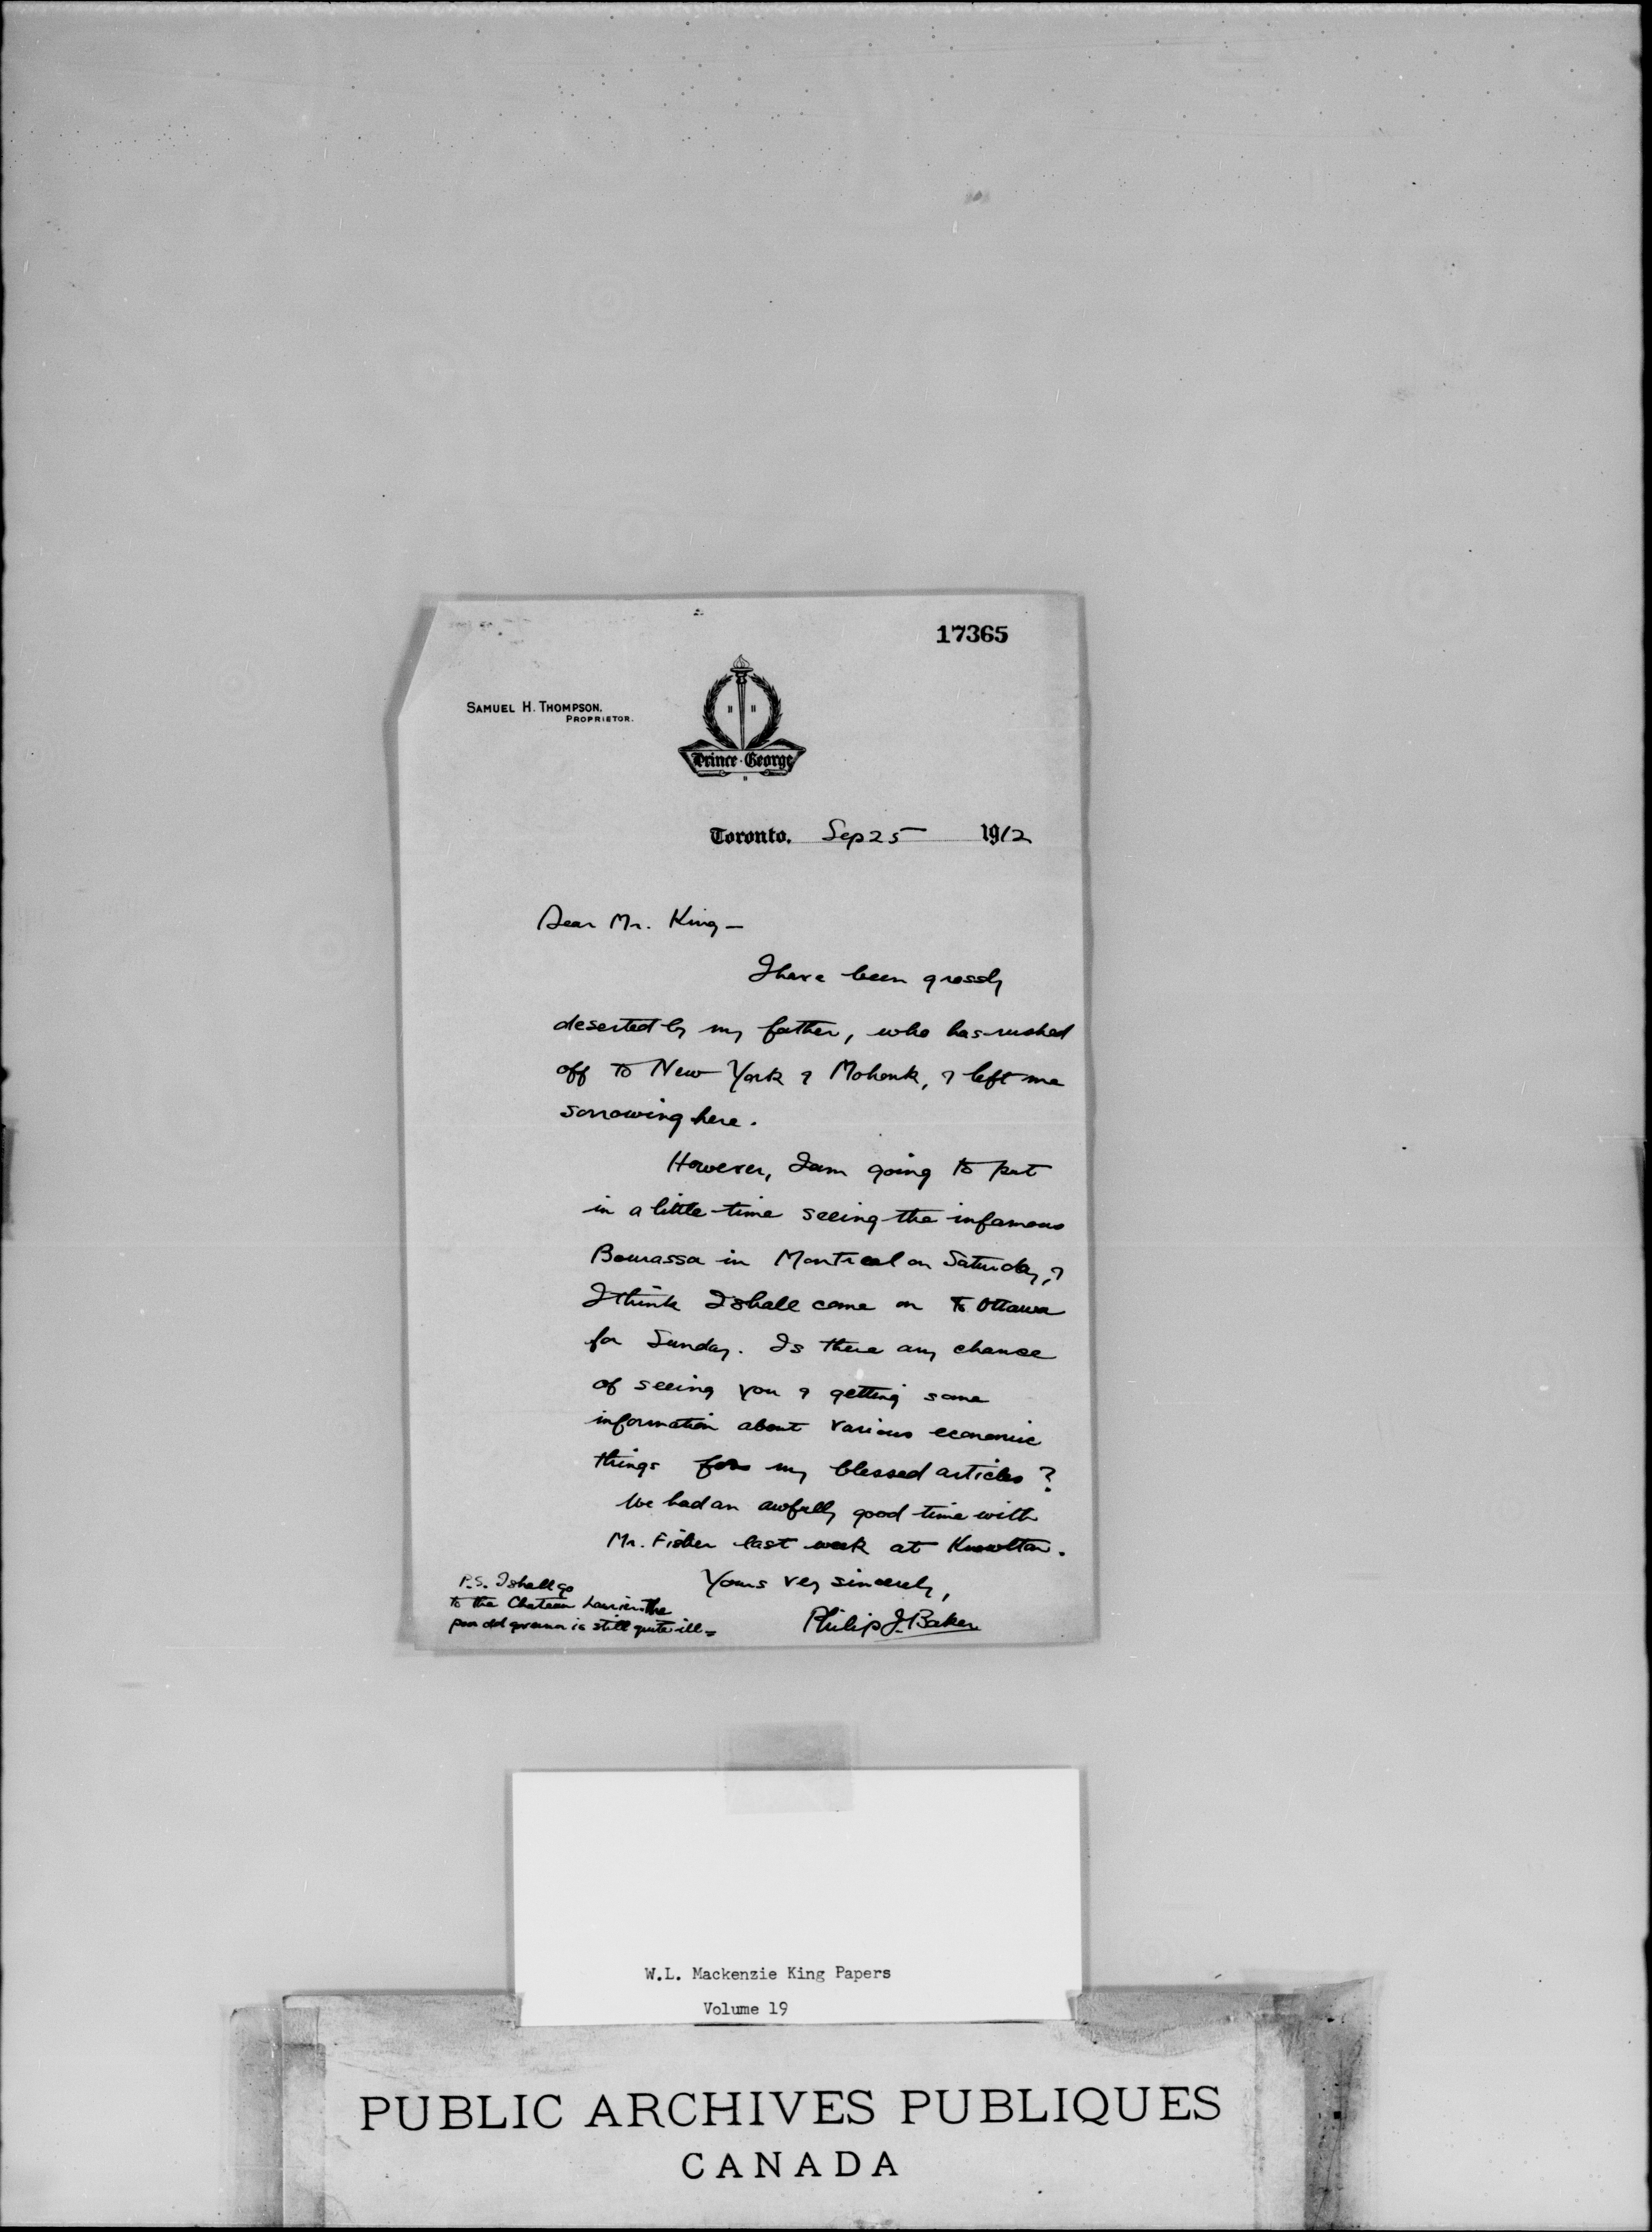 17365
SAMUEL H. THOMPSON.
PROPRIETOR.
Prince George
Toronto, Sep 25 1912
Dear Mr. King -
I have been grossly
deserted by my father, who has rushed
off to New York & Mohonk, & left me
sorrowing here.
However, I am going to put
in a little time seeing the infamous
Bourassa in Montreal on Saturday, &
I think I shall come on to Ottawa
for Sunday. Is there any chance
of seeing you & getting some
information about various economic
things for my blessed articles?
We had an awfully good time with
Mr. Fisher last week at Knowlton.
Yours very sincerely,
Philip J. Baker
P.S. I shall go
to the Chateau Laurier. The
poor old governor is still quite ill -
W.L. Mackenzie King Papers
Volume 19
PUBLIC ARCHIVES PUBLIQUES
CANADA